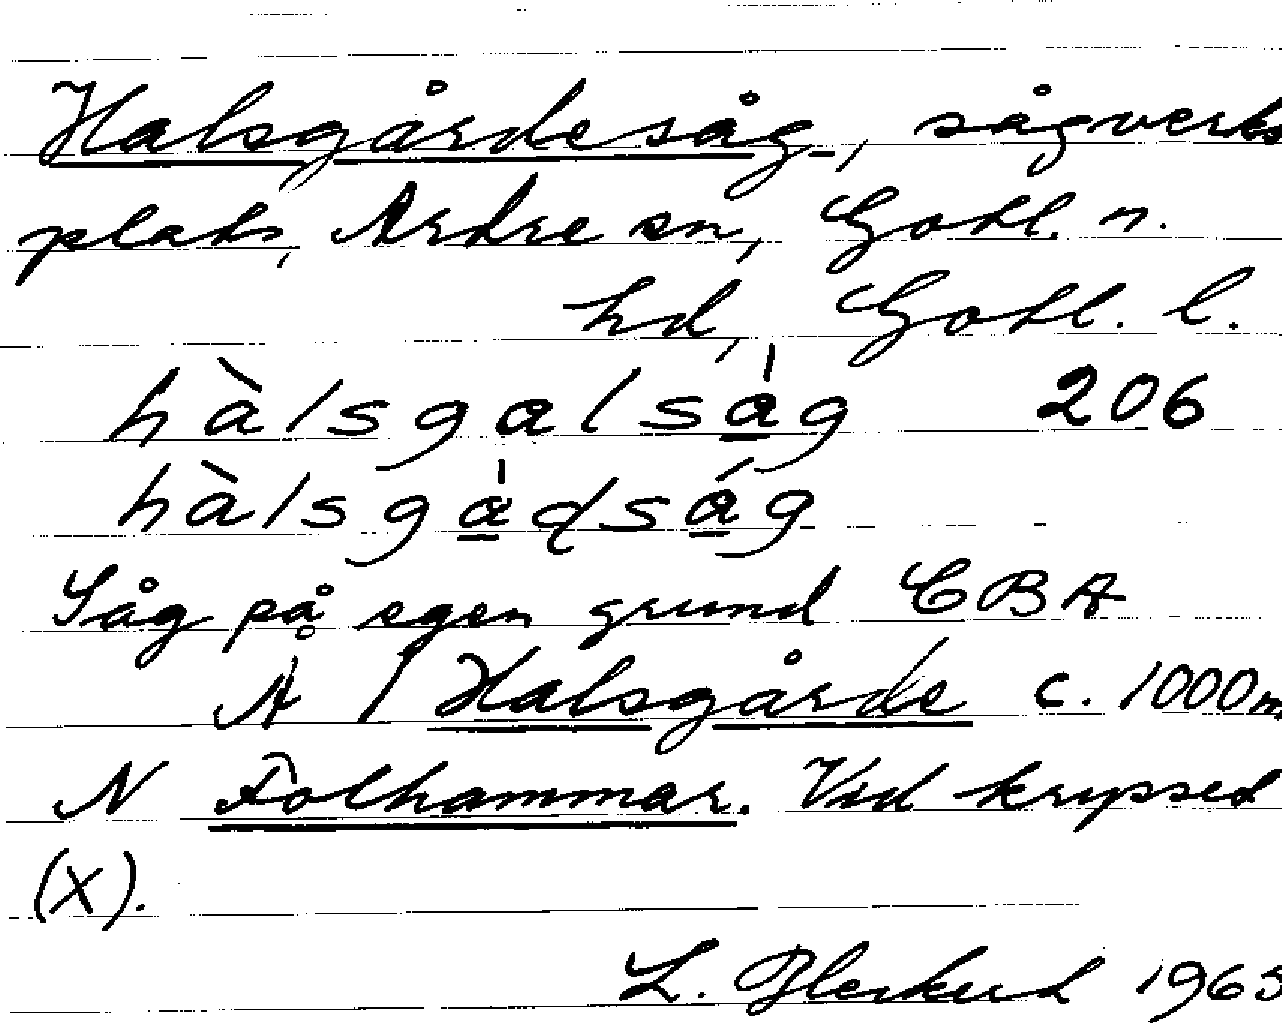 Halsgårdesåg, sågverks
plats, Ardre sn, Gotl. n.
hd, Gotl. l.
hàlsgalsa̲̍g 206
hàlsga̲̍dsá̲g
Såg på egen grund CBA
Å / Halsgårde c. 1000m
N Folhammar. Vid krysset
(X).
L. 1963